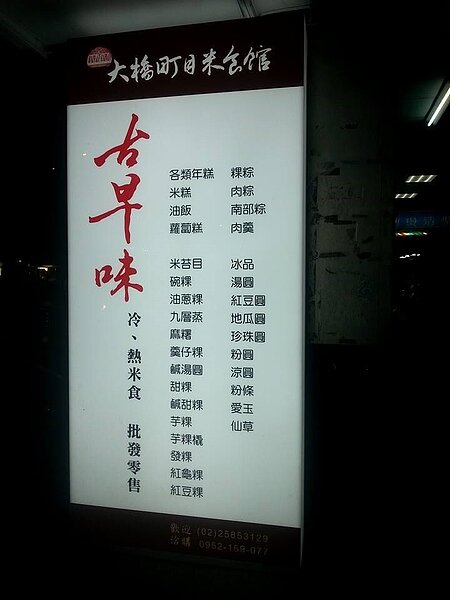 大橋町目米食館
古早味
冷、熱米食 批發零售
各類年糕 粿粽
米糕 肉粽
油飯 南部粽
蘿蔔糕 肉羹
米苔目 冰品
碗粿 湯圓
油蔥粿 紅豆圓
九層蒸 地瓜圓
麻糬 珍珠圓
羹仔粿 粉圓
鹹湯圓 涼圓
甜粿 粉條
鹹甜粿 愛玉
芋粿 仙草
芋粿橇
發粿
紅龜粿
紅豆粿
歡迎 (02)25853129
洽購 0952-159-077